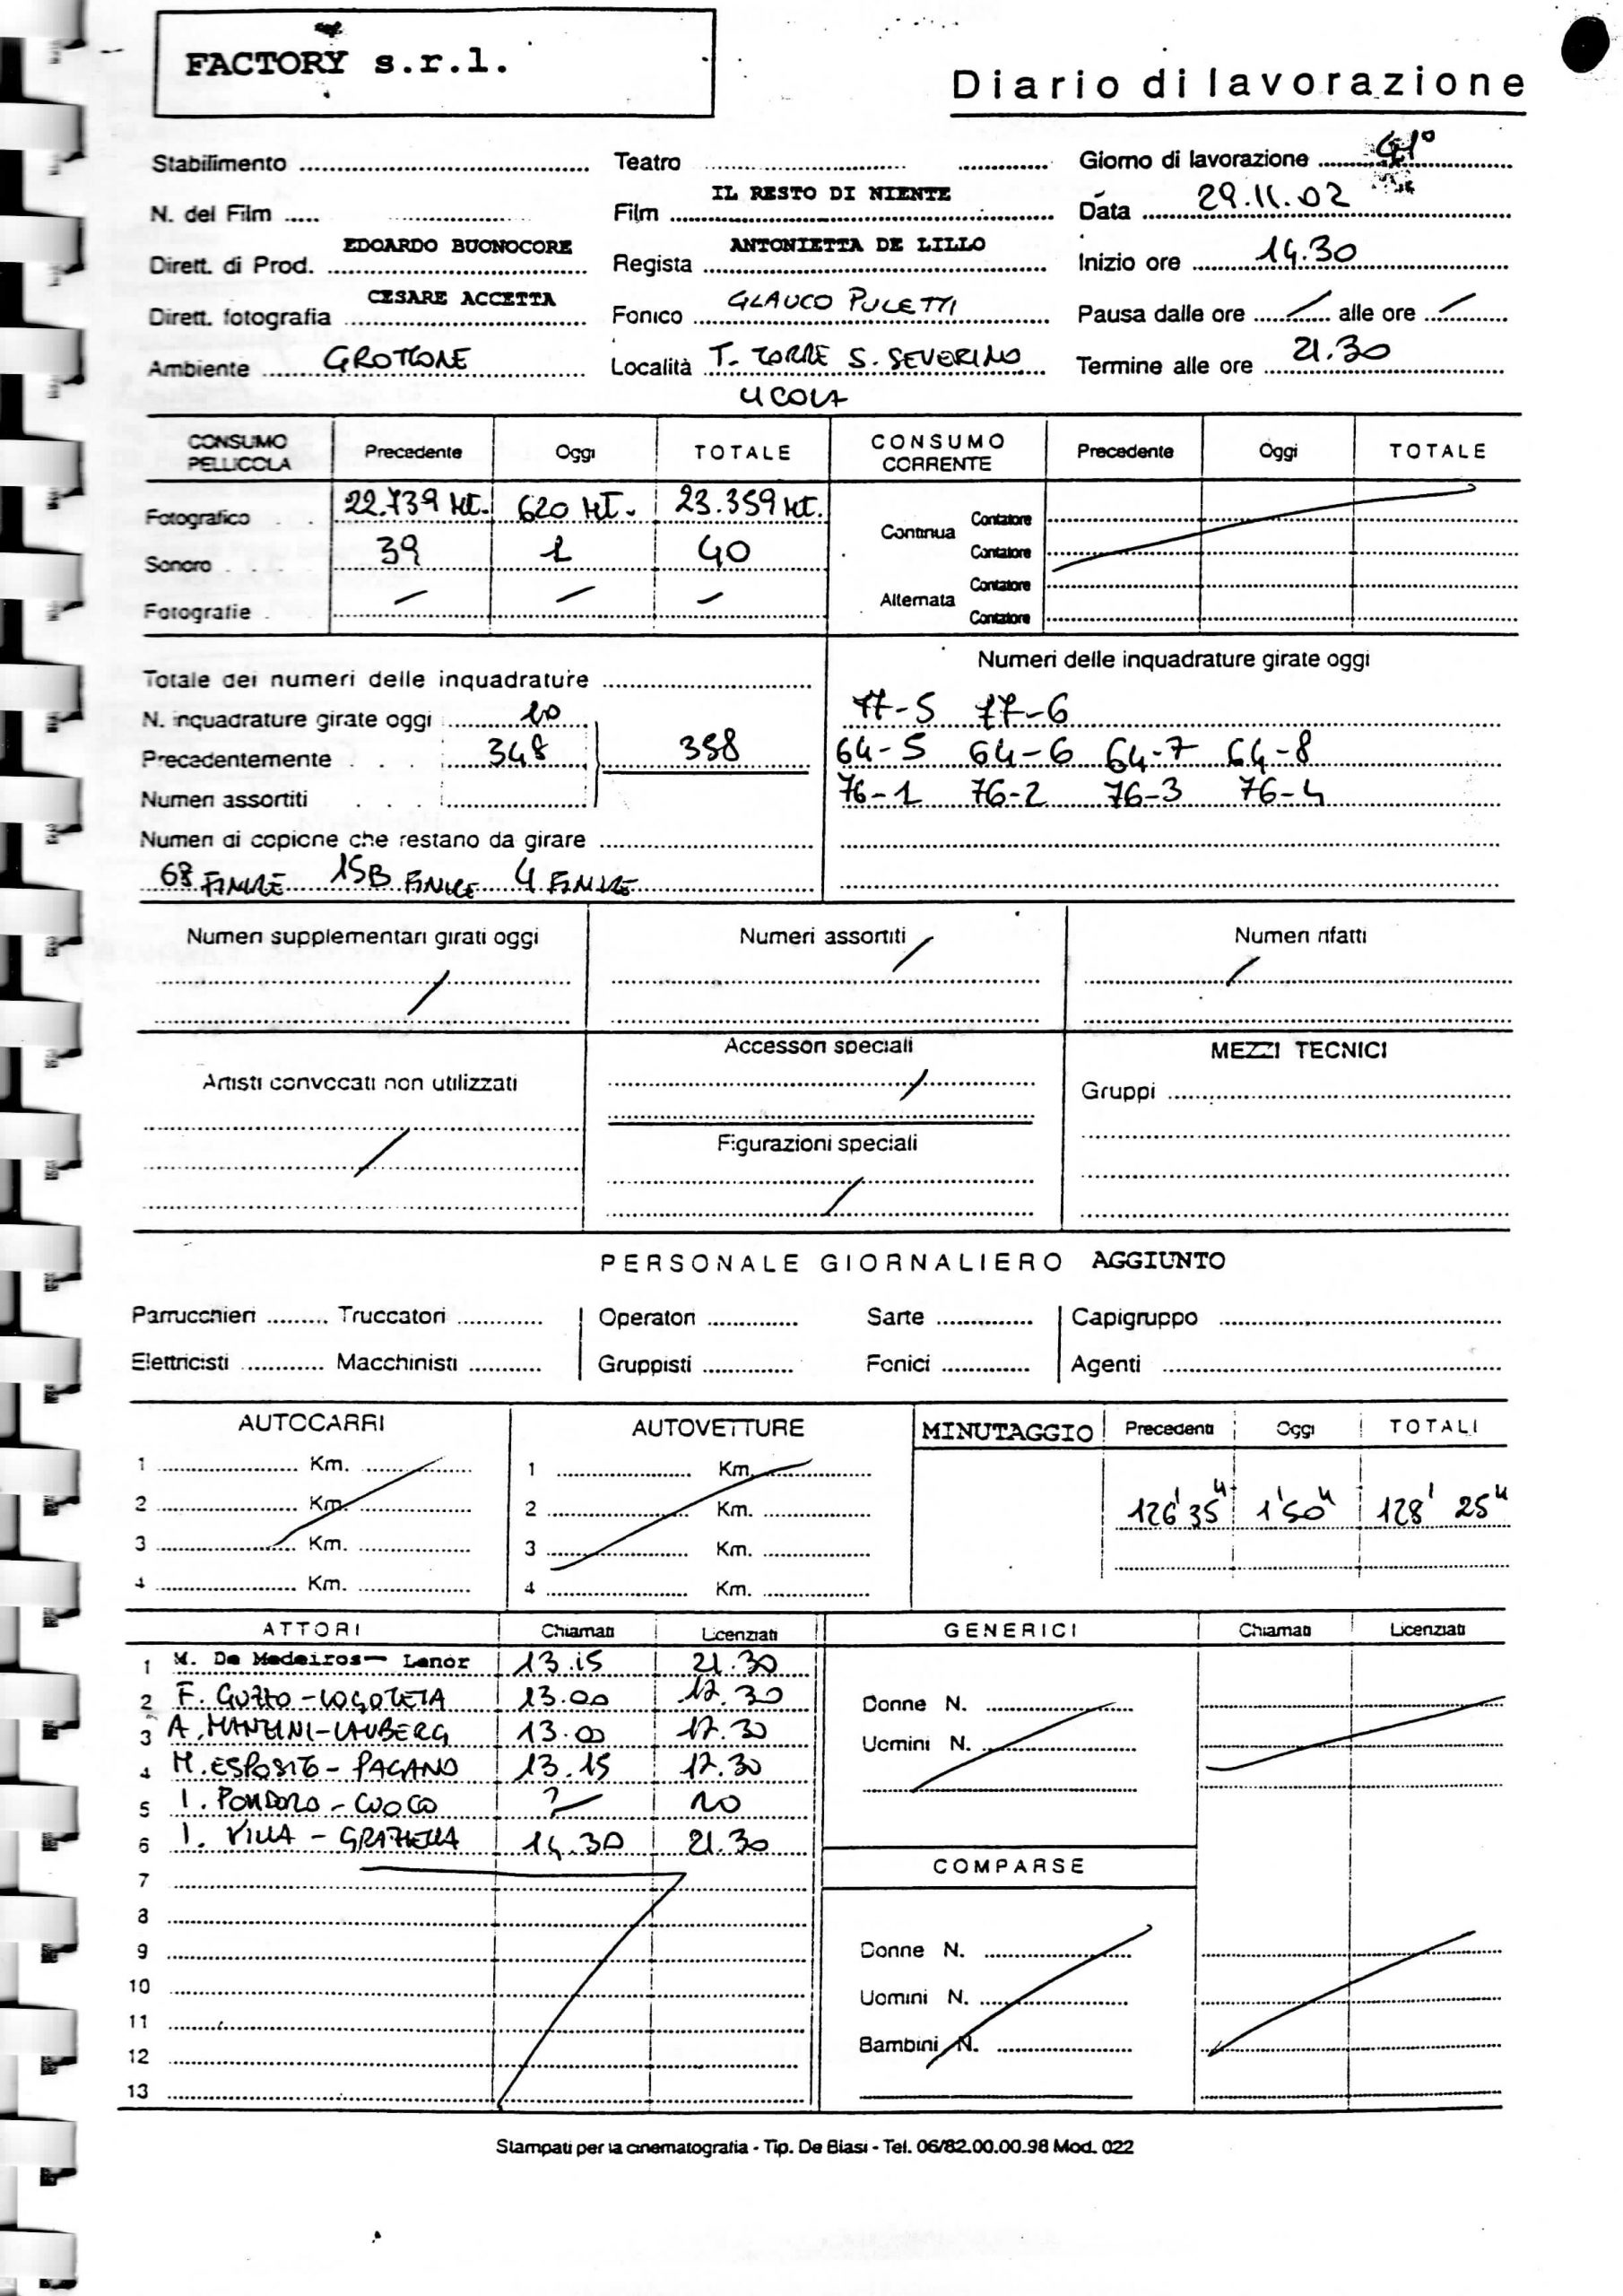 FACTORY s.r.l.
Diario di lavorazione
Stabilimento Teatro Giorno di lavorazione 41°
N. del Film Film IL RESTO DI NIENTE Data 29.11.02
Dirett. di Prod. EDOARDO BUONOCORE Regista ANTONIETTA DE LILLO Inizio ore 14.30
Dirett. fotografia CESARE ACCETTA Fonico GLAUCO PULETTI Pausa dalle ore / alle ore /
Ambiente GROTTONE Località T. TORRE S. SEVERINO Termine alle ore 21.30
LICOLA
CONSUMO PELLICOLA Precedente Oggi TOTALE CONSUMO CORRENTE Precedente Oggi TOTALE
Fotografico 22.739 MT. 620 MT. 23.359 MT. Continua Contatore
Sonoro 39 1 40 Contatore
Fotografie – – – Alternata Contatore
Contatore
Totale dei numeri delle inquadrature Numeri delle inquadrature girate oggi
N. inquadrature girate oggi 10 77-5 77-6
Precedentemente 348 358 64-5 64-6 64-7 64-8
Numeri assortiti 76-1 76-2 76-3 76-4
Numeri di copione che restano da girare
68 FINIRE 15B FINIRE 4 FINIRE
Numeri supplementari girati oggi Numeri assortiti Numeri rifatti
Artisti convocati non utilizzati Accessori speciali MEZZI TECNICI
Gruppi
Figurazioni speciali
PERSONALE GIORNALIERO AGGIUNTO
Parrucchieri Truccatori Operatori Sarte Capigruppo
Elettricisti Macchinisti Gruppisti Fonici Agenti
AUTOCARRI AUTOVETTURE MINUTAGGIO Precedenti Oggi TOTALI
1 Km. 1 Km.
2 Km. 2 Km. 126' 35" 1' 50" 128' 25"
3 Km. 3 Km.
4 Km. 4 Km.
ATTORI Chiamati Licenziati GENERICI Chiamati Licenziati
1 M. De Medeiros— Lenor 13.15 21.30
2 F. GUZZO - LOGOTETA 13.00 17.30 Donne N.
3 A. MANZINI - LAUBERG 13.00 17.30 Uomini N.
4 M. ESPOSITO - PAGANO 13.15 17.30
5 - CUOCO 20
6 I. VILLA - GRAZIELLA 14.30 21.30
7 COMPARSE
8
9 Donne N.
10
11 Uomini N.
12 Bambini N.
13
Stampati per la cinematografia - Tip. De Biasi - Tel. 06/82.00.00.98 Mod. 022